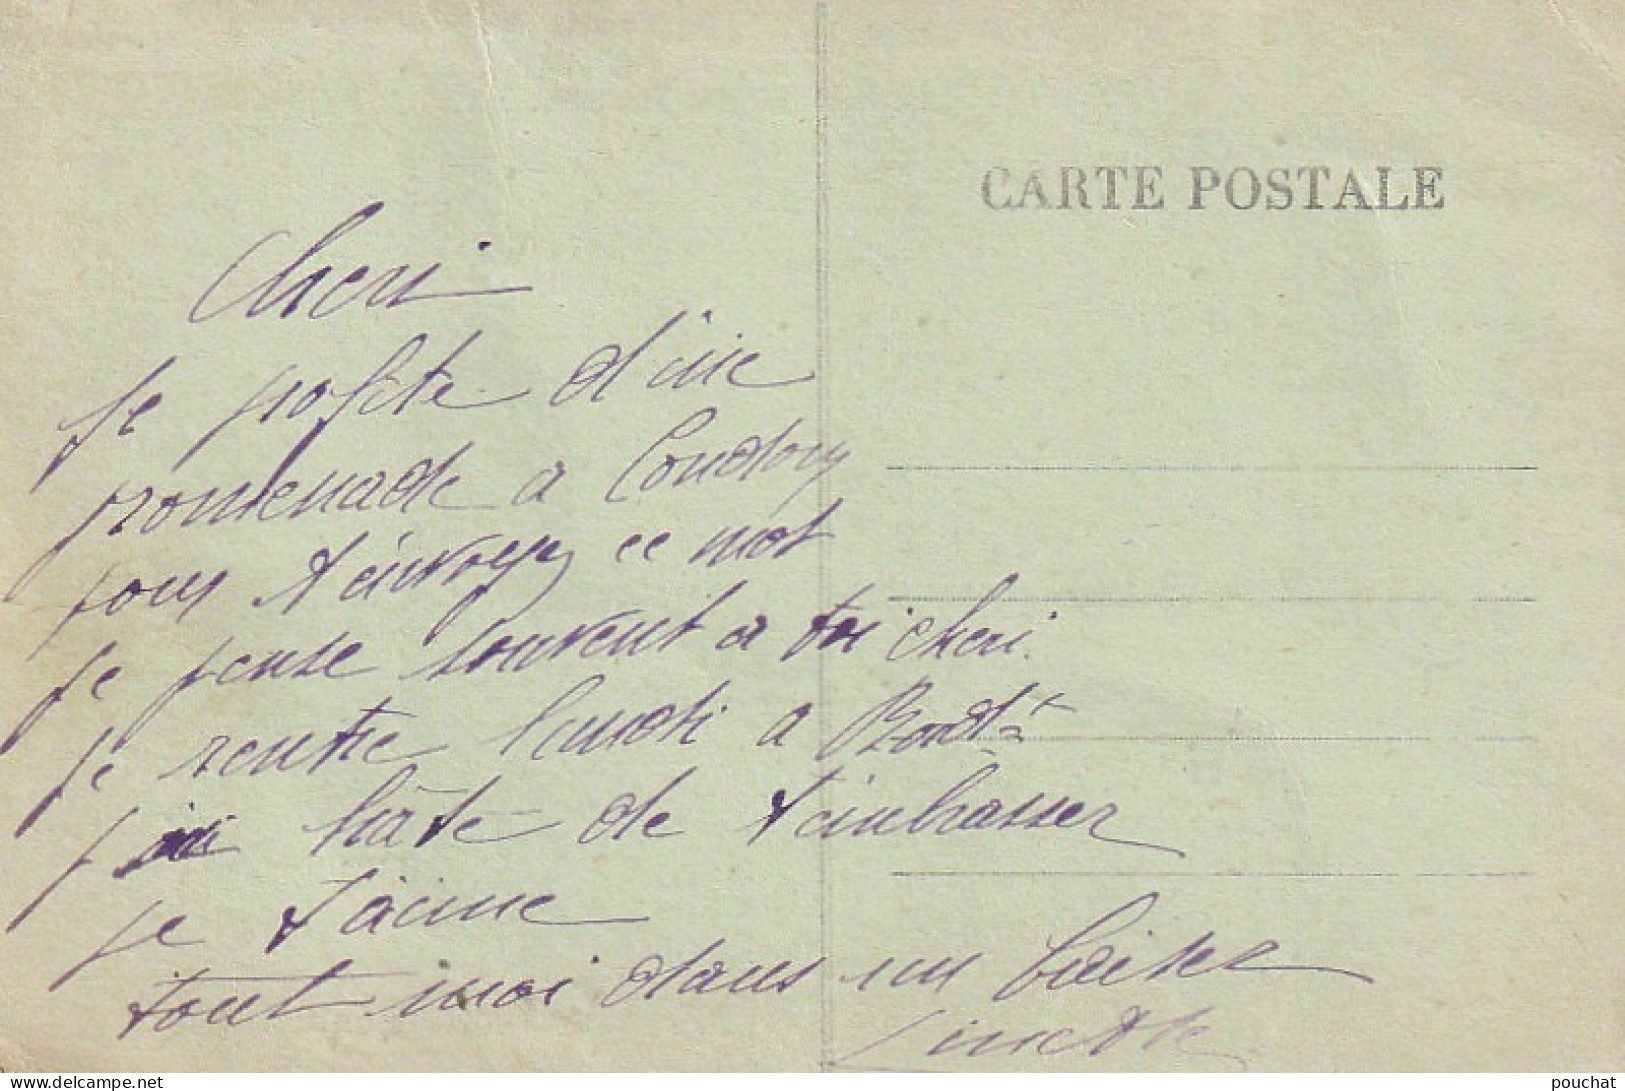 CARTE POSTALE
Cheri
Je profite d'une
promenade a
pour t'envoyer ce mot
Je pense souvent a toi cheri.
Je rentre lundi a
j'ai hâte de t'embrasser
je t'aime
tout moi dans un baiser
delcampe.net
pouchat